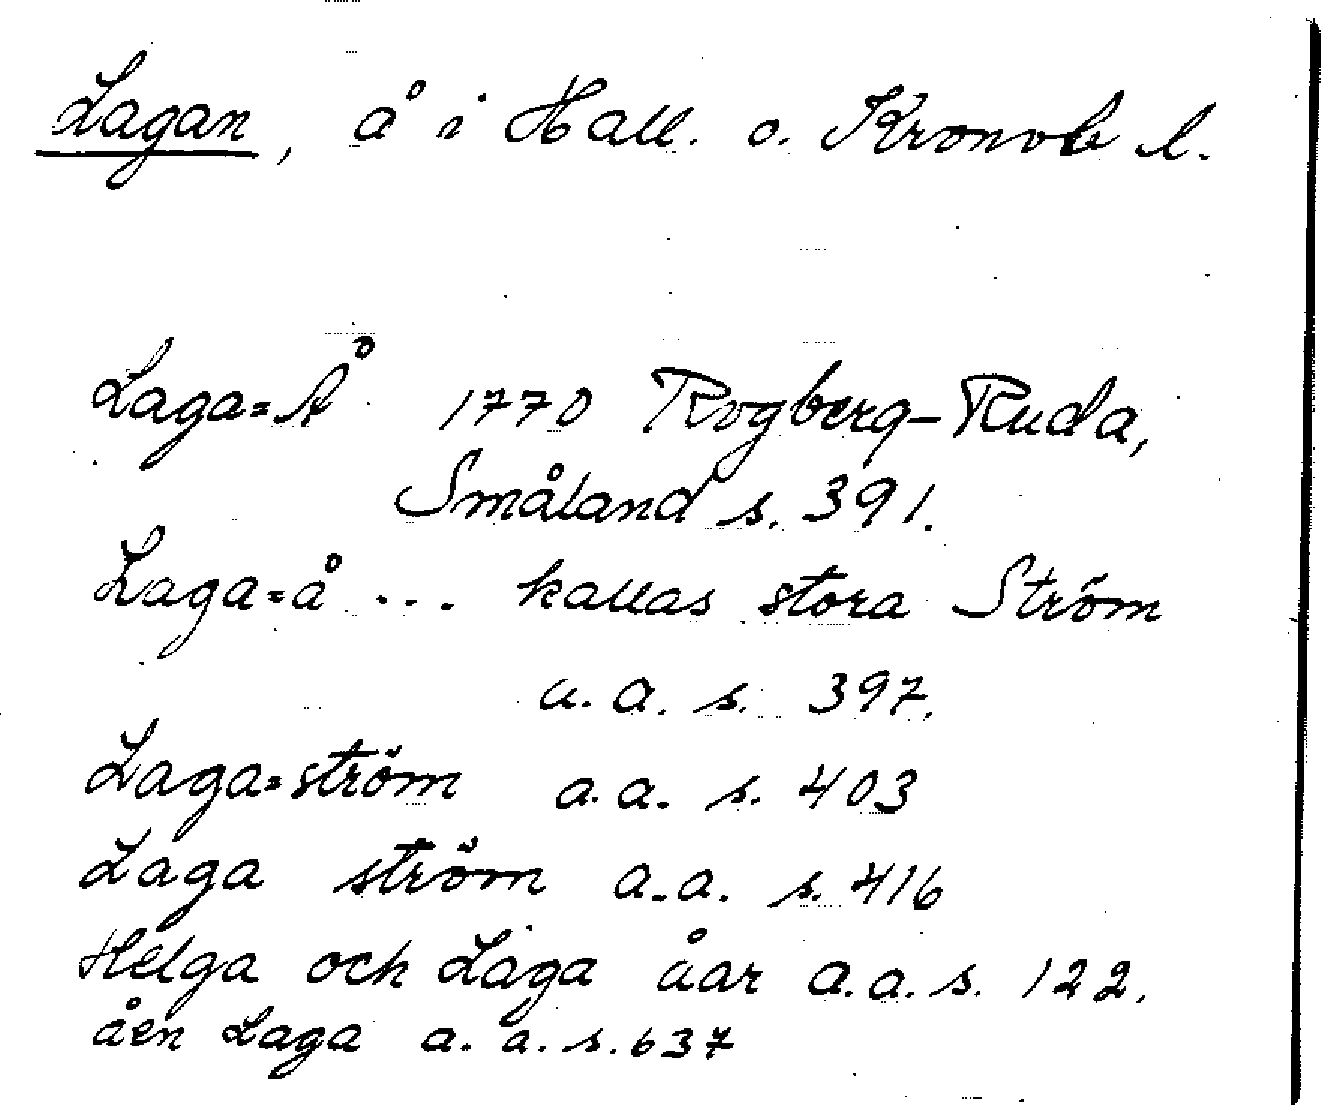 Lagan, å i Hall. o. Kronob l.
Laga=Å 1770 Rogberg-Ruda,
Småland s. 391.
Laga=å ... kallas stora Ström
a. a. s. 397.
Laga=ström a. a. s. 403
Laga ström a. a. s. 416
Helga och Laga åar a. a. s. 122.
åen Laga a. a. s. 637